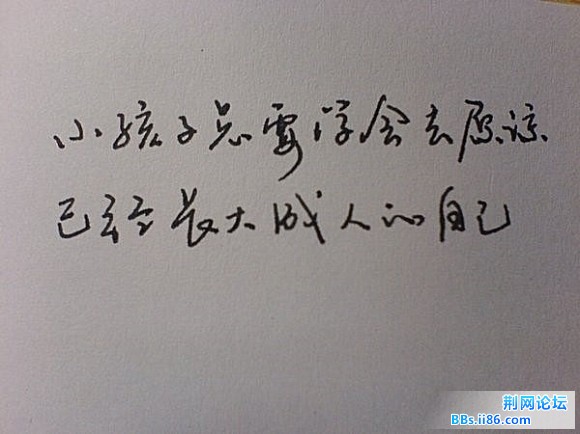 小孩子总要学会去原谅
已经长大成人的自己
荆网论坛
BBs.ii86.com